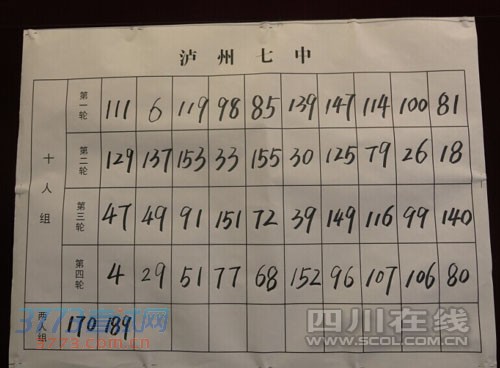 泸州七中
十人组
第一轮 111 6 119 98 85 139 147 114 100 81
第二轮 129 137 153 33 155 30 125 79 26 18
第三轮 47 49 91 151 72 39 149 116 99 140
第四轮 4 29 51 77 68 152 96 107 106 80
两人组 170 189
四川在线
WWW.SCOL.COM.CN